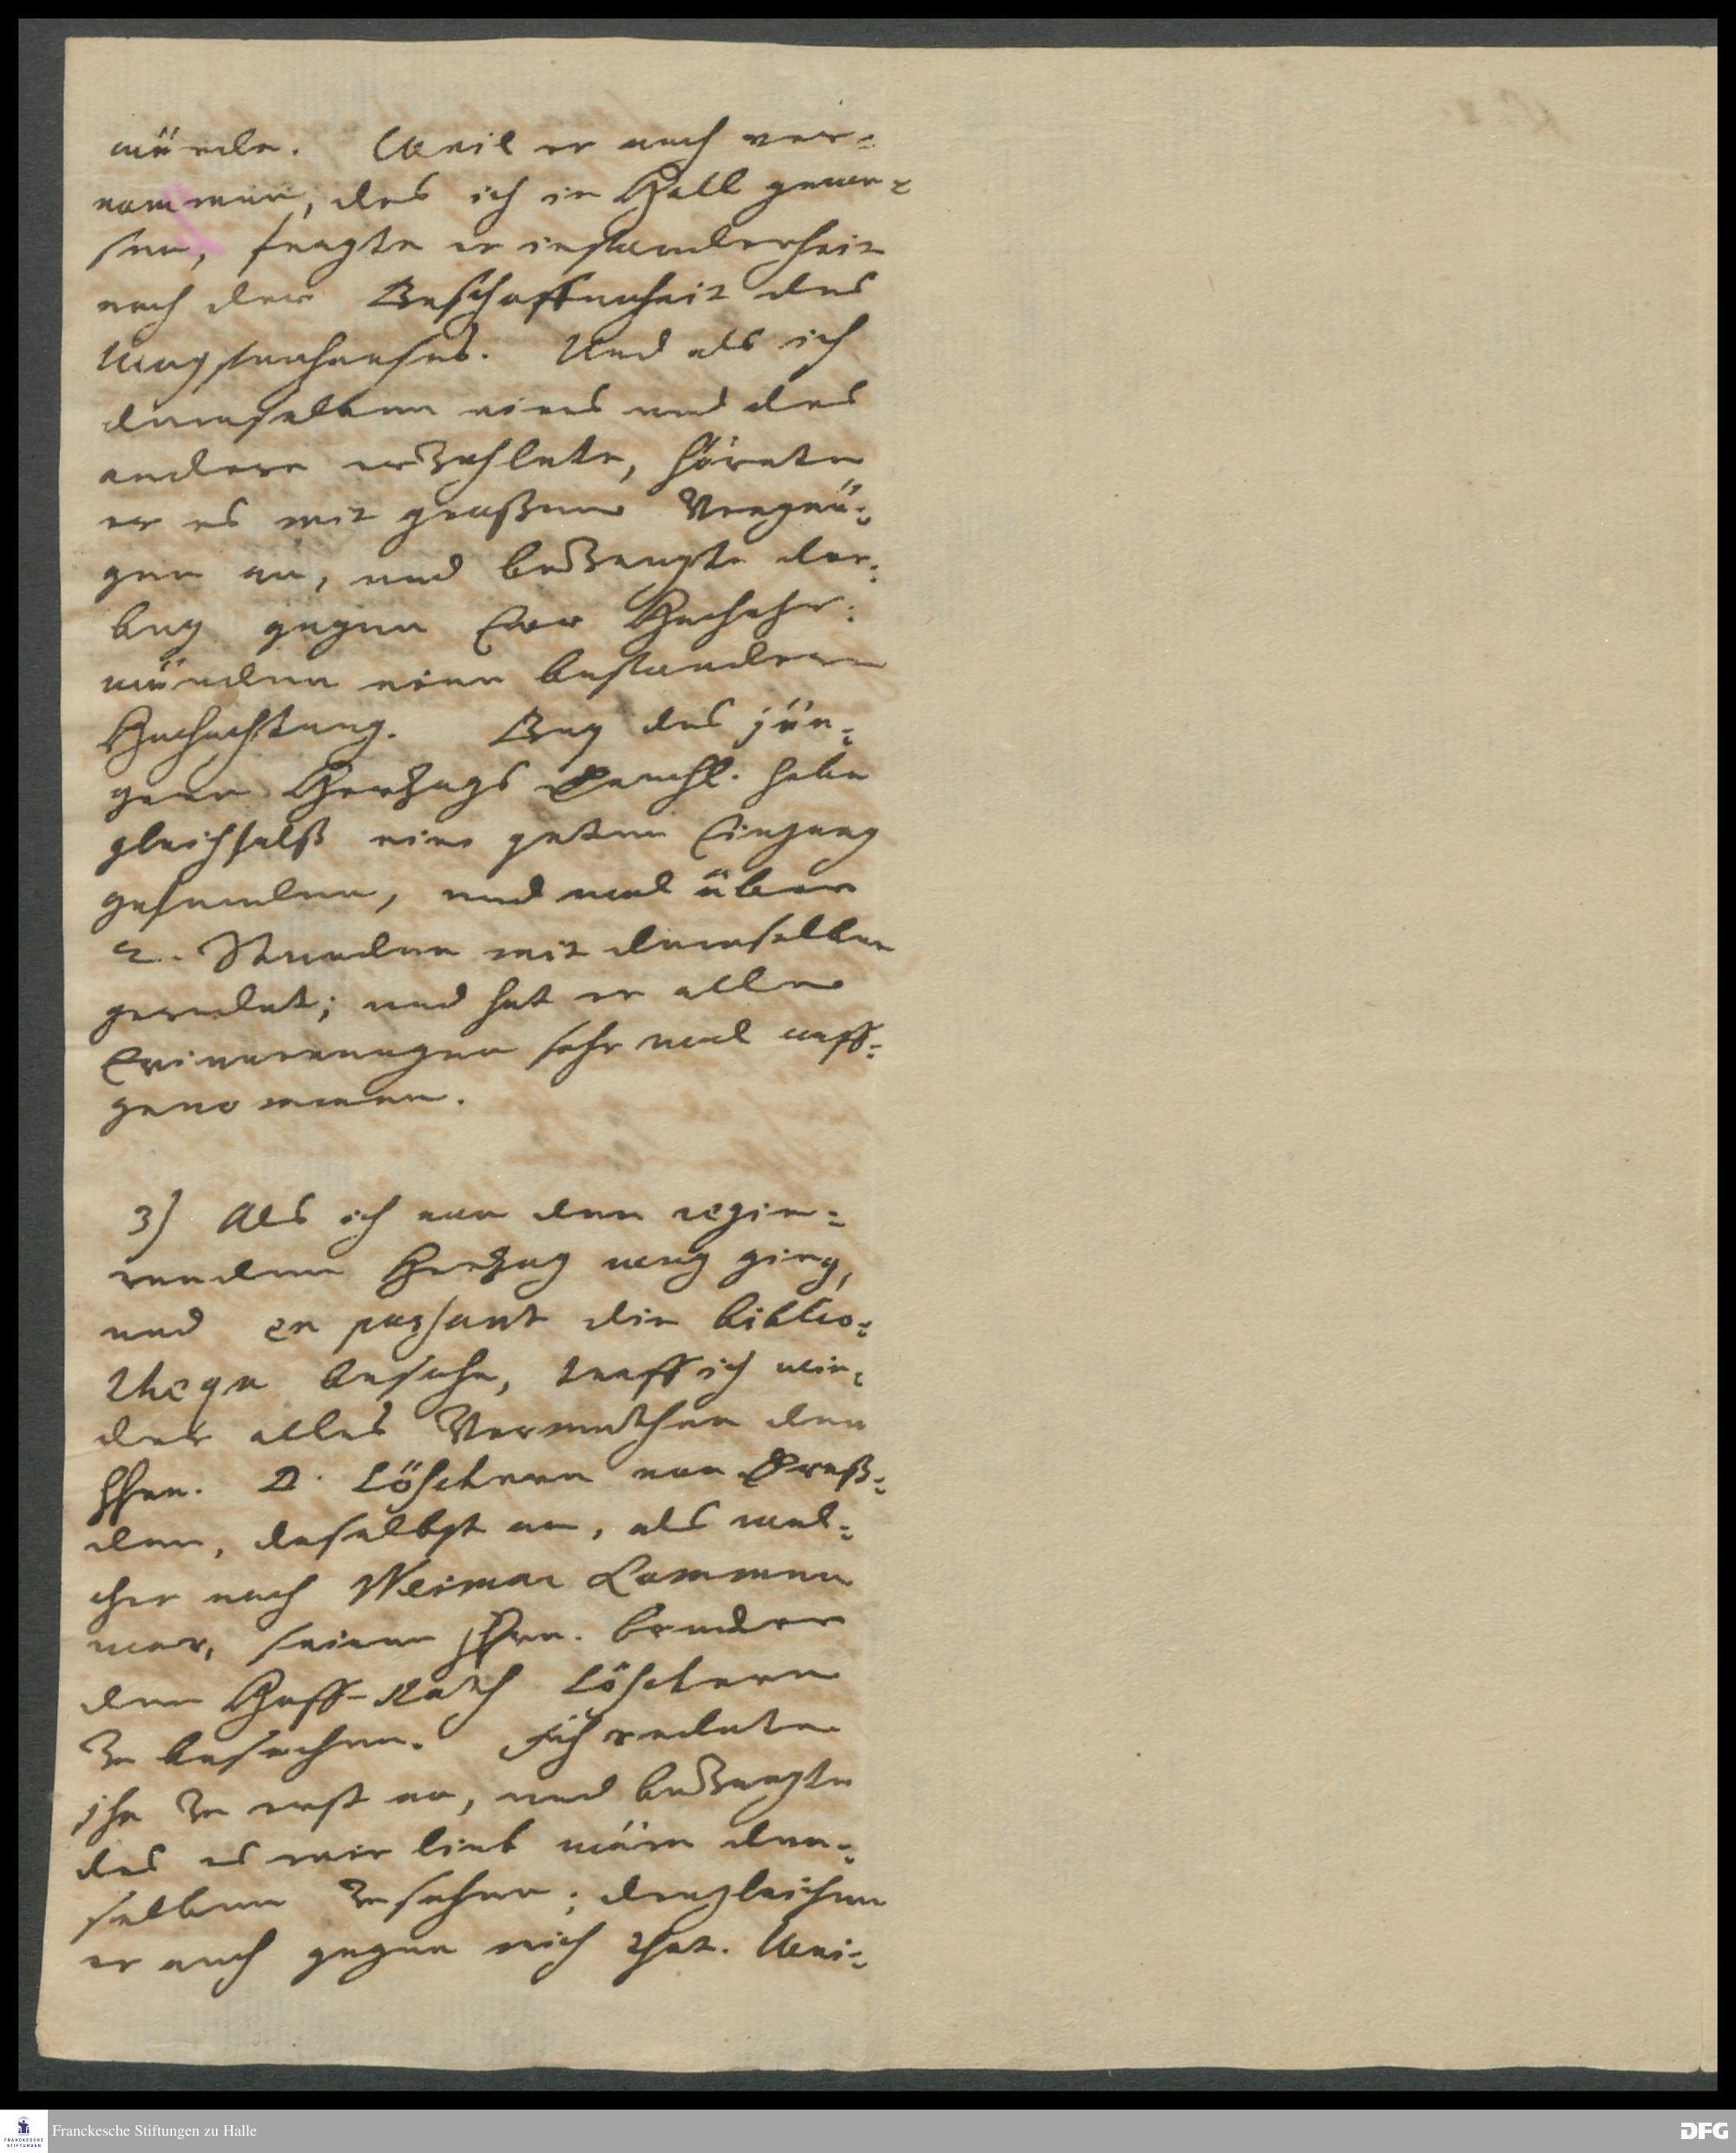 würde. Weil er auch ver-
nommen, das ich in Hall gewe-
sen, fragte er insonderheit
nach der Beschaffenheit des
Waysenhauses. Und als ich
demselben eines und das
andere erzehlete, hörete
er es mit großem Vergnü-
gen an, und bezeugte dar-
bey gegen Ew. Hochehr-
würden eine besondere
Hochachtung. Bey des jün-
gern Herzogs Durchl. habe
gleichfalß einen guten Eingang
gefunden, und wol über
2. Stunden mit demselben
geredet; und hat er alle
Erinnerungen sehr wol auff-
genommen.
3) Als ich von dem regie-
renden Herzog weg ging,
und en passant die biblio-
theqe besahe, traff ich wie-
der alles Vermuthen den
Hrn. D. Löschern von Dreß-
den, daselbst an, als wel-
cher nach Weimar kommen
war, seinen Hrn. Bruder
den Hoff-Rath Löschern
zu besuchen. Ich redete
ihn zu erst an, und bezeugte
das es mir lieb wäre den-
selben zu sehen; dergleichen
er auch gegen mich that. Wei-
Franckesche Stiftungen zu Halle
FRANCKESCHE
STIFTUNGEN
DFG